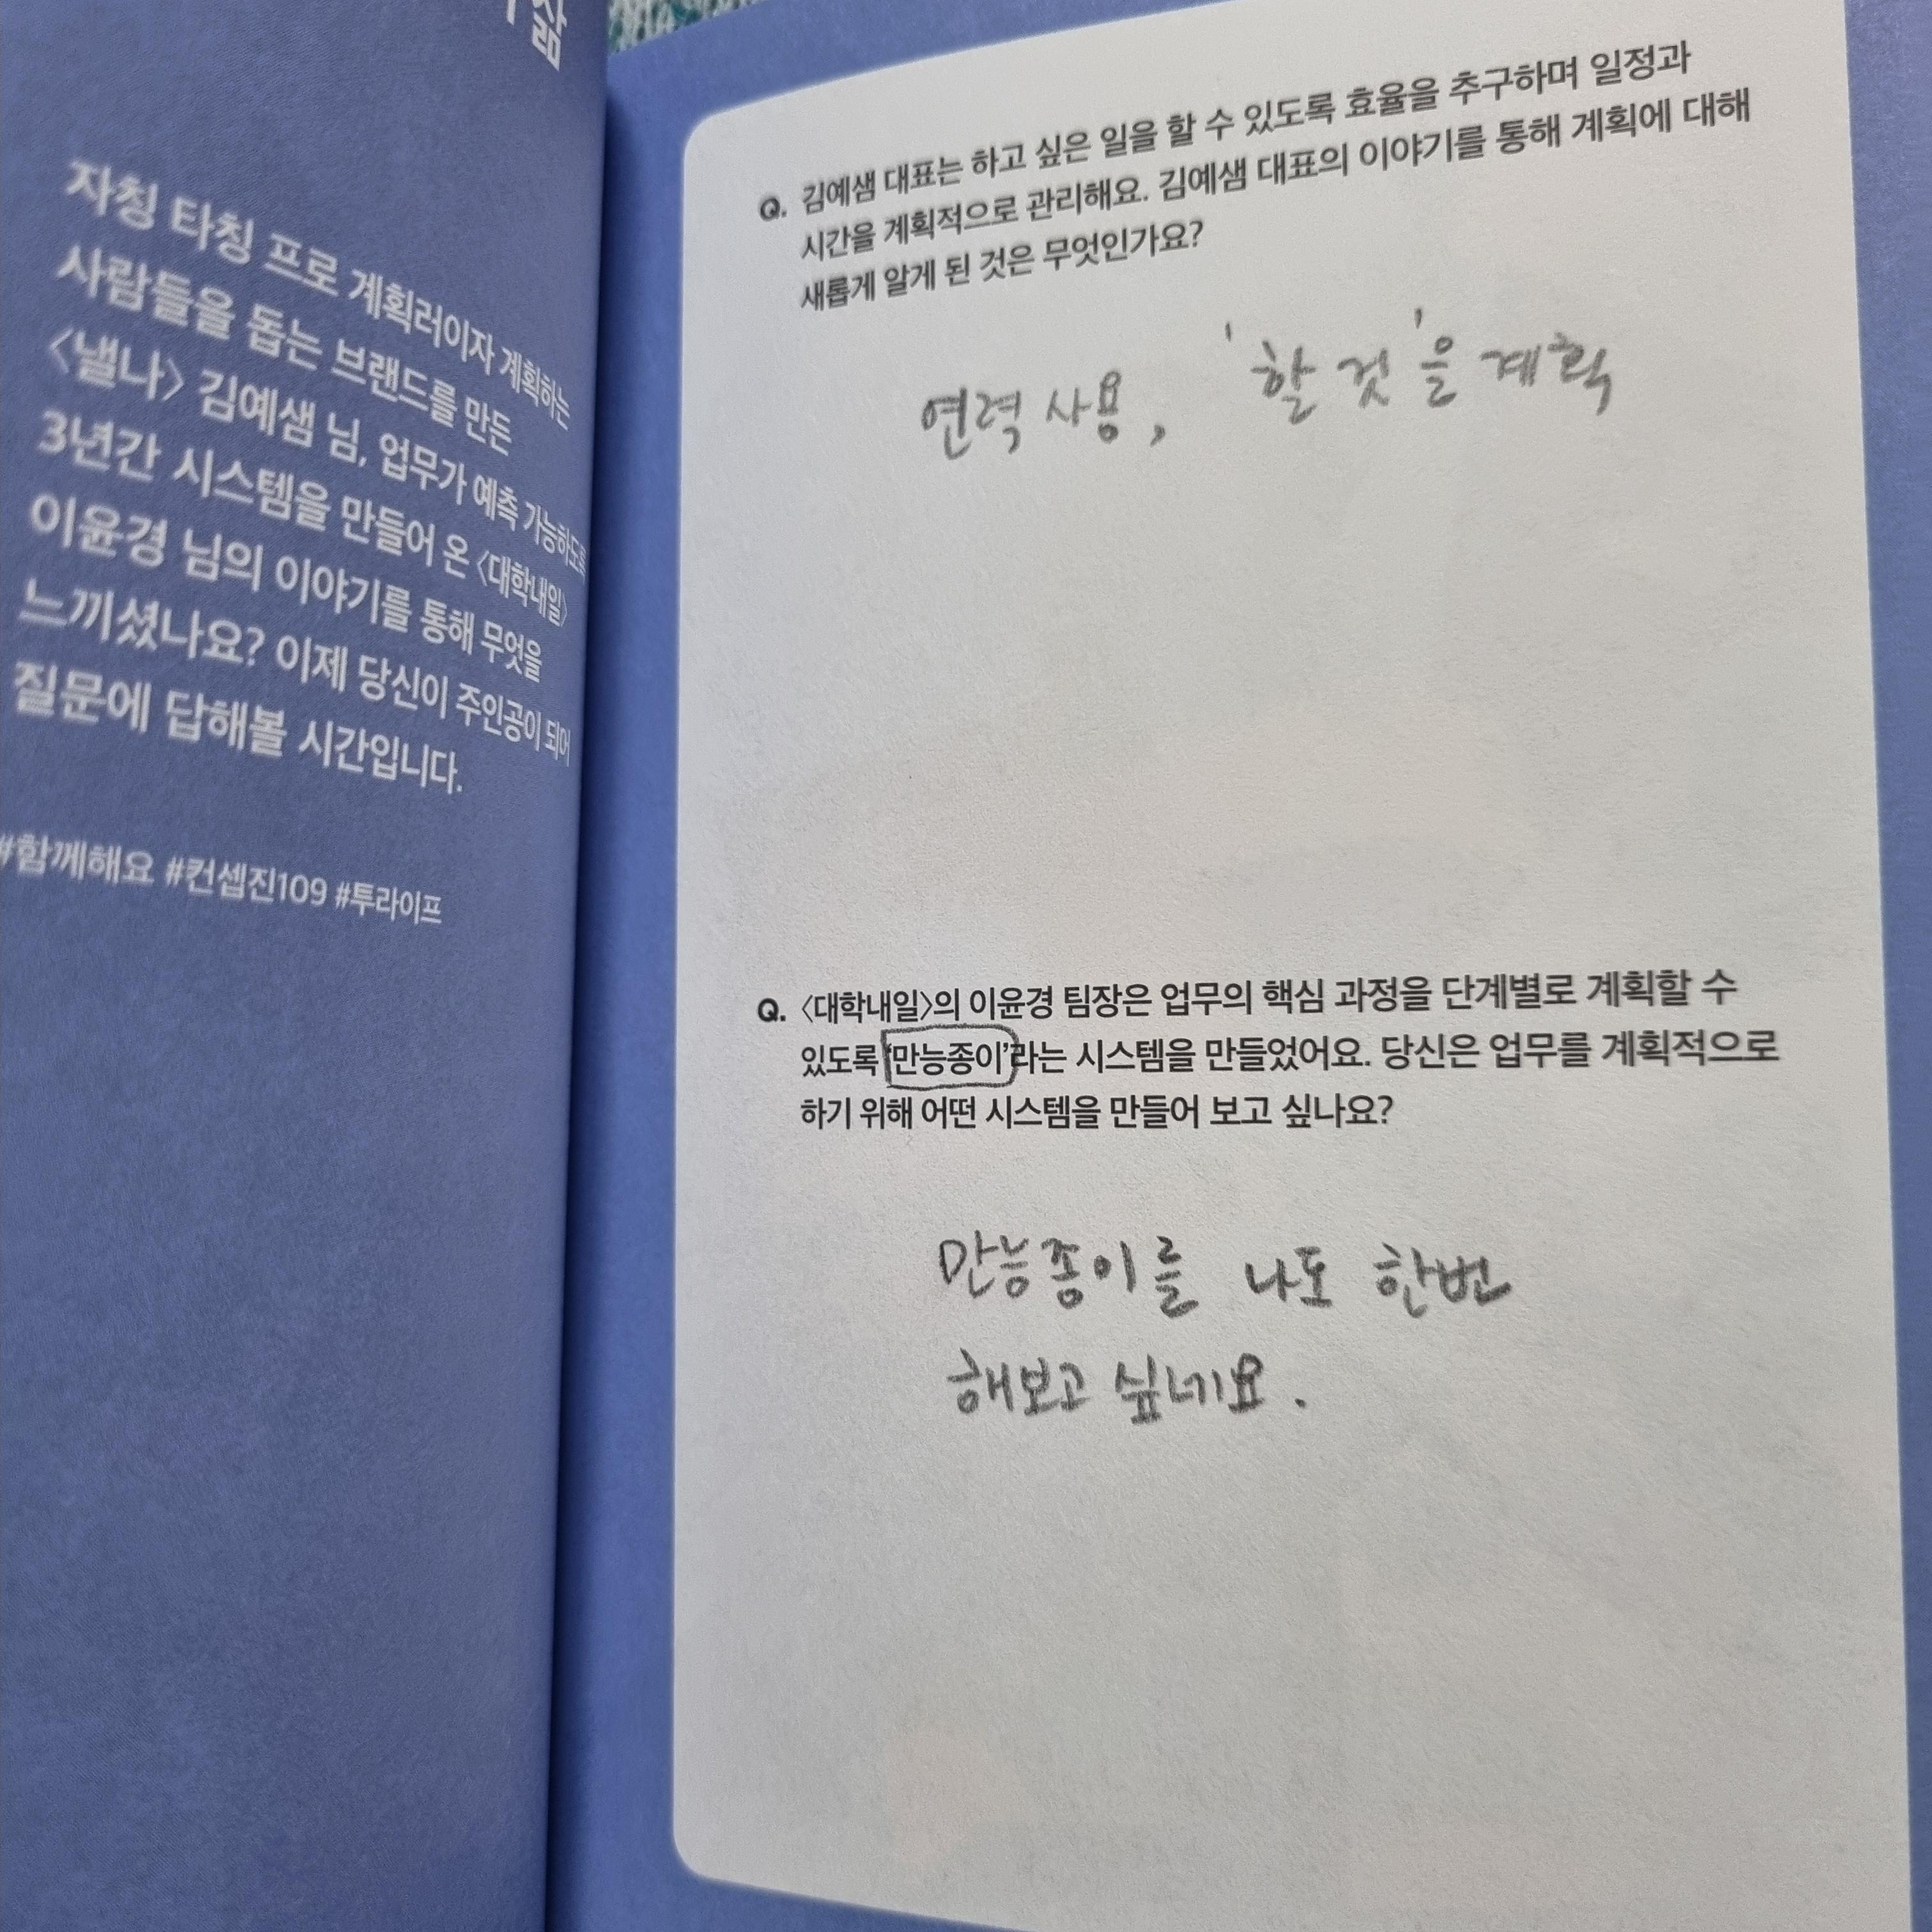 삶
자칭 타칭 프로 계획러이자 계획하는
사람들을 돕는 브랜드를 만든
〈낼나〉 김예샘 님, 업무가 예측 가능하도록
3년간 시스템을 만들어 온 〈대학내일〉
이윤경 님의 이야기를 통해 무엇을
느끼셨나요? 이제 당신이 주인공이 되어
질문에 답해볼 시간입니다.
#함께해요 #컨셉진109 #투라이프
Q. 김예샘 대표는 하고 싶은 일을 할 수 있도록 효율을 추구하며 일정과
시간을 계획적으로 관리해요. 김예샘 대표의 이야기를 통해 계획에 대해
새롭게 알게 된 것은 무엇인가요?
연력 사용, '할 것'을 계획
Q. 〈대학내일〉의 이윤경 팀장은 업무의 핵심 과정을 단계별로 계획할 수
있도록 '만능종이'라는 시스템을 만들었어요. 당신은 업무를 계획적으로
하기 위해 어떤 시스템을 만들어 보고 싶나요?
만능종이를 나도 한번
해보고 싶네요.